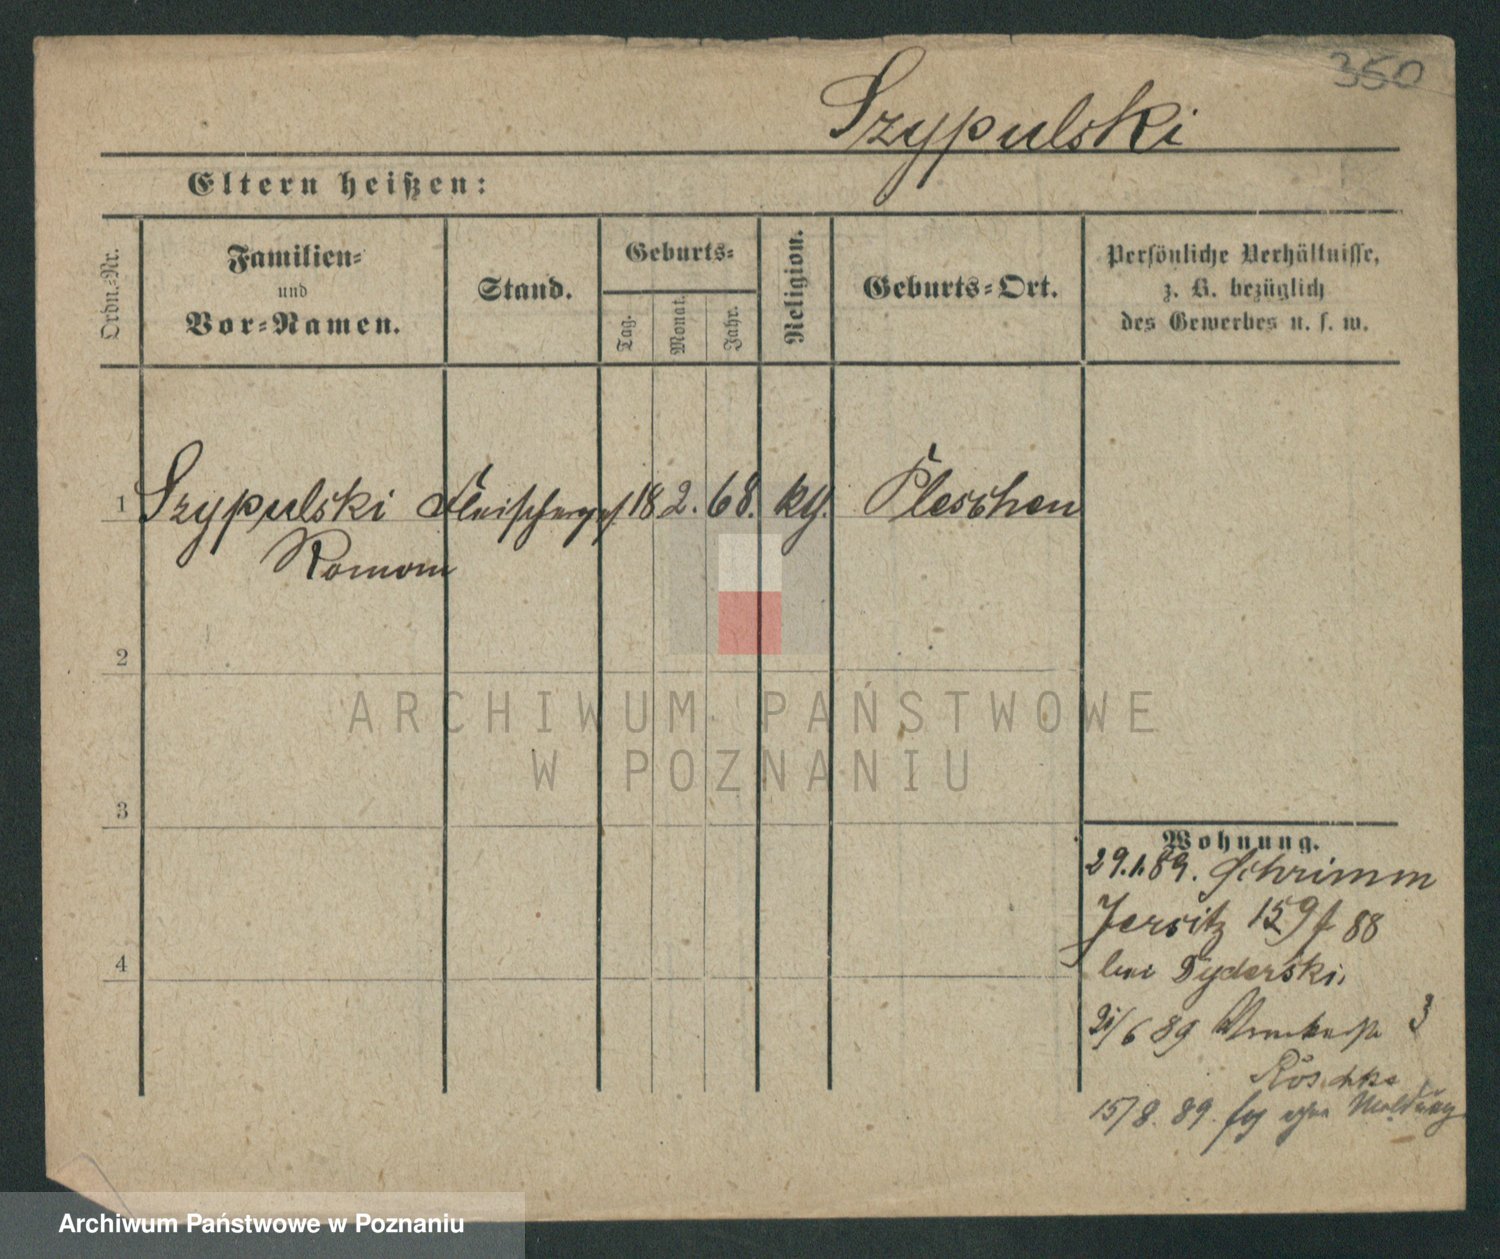 350
Szypulski
Eltern heißen:
Ordn.-Nr.
Familien-
und
Vor-Namen.
Stand.
Geburts-
Tag.
Monat.
Jahr.
Religion.
Geburts-Ort.
Persönliche Verhältnisse,
z. B. bezüglich
des Gewerbes u. s. w.
1 Szypulski Fleischerges. 18 2. 68. kth. Pleschen
Roman
2
3
4
Wohnung.
29.1.89. Schrimm
Jersitz 159f 88
bei Dyderski.
6 89 3
15/8. 89. ohne Meldung
ARCHIWUM PAŃSTWOWE
W POZNANIU
Archiwum Państwowe w Poznaniu